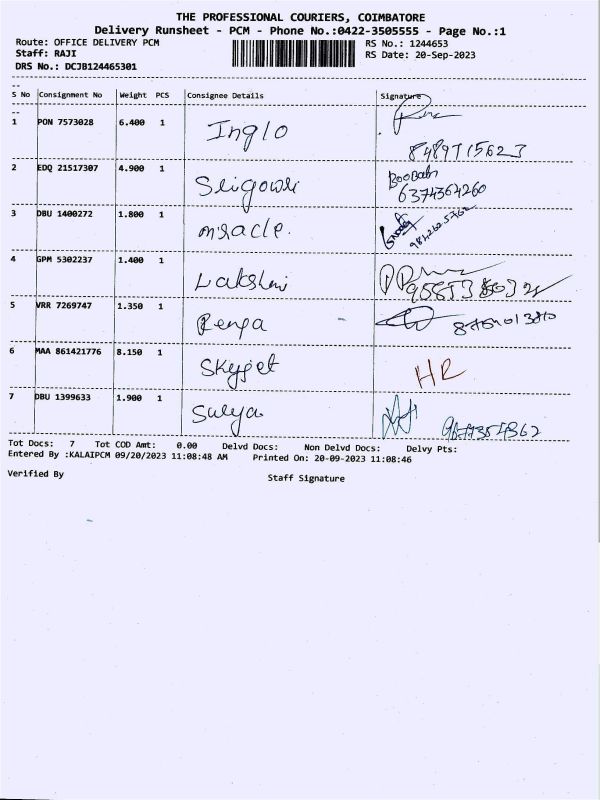 THE PROFESSIONAL COURIERS, COIMBATORE
Delivery Runsheet - PCM - Phone No.:0422-3505555 - Page No.:1
Route: OFFICE DELIVERY PCM RS No.: 1244653
Staff: RAJI RS Date: 20-Sep-2023
DRS No.: DCJB124465301
S No Consignment No Weight PCS Consignee Details Signature
1 PON 7573028 6.400 1 Inglo
2 EDQ 21517307 4.900 1 Boobalan
6374364260
3 DBU 1400272 1.800 1 miracle.
4 GPM 5302237 1.400 1 Lakshmi
5 VRR 7269747 1.350 1 Renga
6 MAA 861421776 8.150 1 Skyjet HR
7 DBU 1399633 1.900 1 Surya
Tot Docs: 7 Tot COD Amt: 0.00 Delvd Docs: Non Delvd Docs: Delvy Pts:
Entered By :KALAIPCM 09/20/2023 11:08:48 AM Printed On: 20-09-2023 11:08:46
Verified By Staff Signature